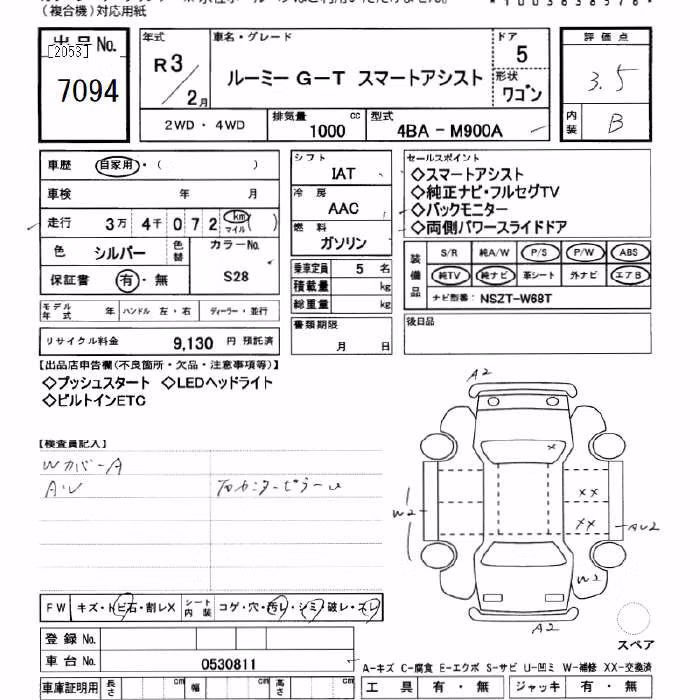 (複合機)対応用紙
*1003638576*
出品No. [2053]
7094
年式 R3/2月
車名・グレード
ルーミー G-T スマートアシスト
ドア 5
形状 ワゴン
評価点 3.5
内装 B
2WD・4WD
排気量 1000 cc
型式 4BA-M900A
車歴 自家用・( )
車検 年 月
走行 3万 4千 0 7 2 km マイル ( )
色 シルバー 色替 カラーNo. S28
保証書 有・無
モデル年式 年 ハンドル 左・右 ディーラー・並行
リサイクル料金 9,130 円 預託済
シフト IAT
冷房 AAC
燃料 ガソリン
乗車定員 5 名
積載量 kg
総重量 kg
書類期限 月 日
セールスポイント
◇スマートアシスト
◇純正ナビ・フルセグTV
◇バックモニター
◇両側パワースライドドア
装備品 S/R 純A/W P/S P/W ABS
純TV 純ナビ 革シート 外ナビ エアB
ナビ型番: NSZT-W68T
後日品
【出品店申告欄(不良箇所・欠品・注意事項等)】
◇プッシュスタート ◇LEDヘッドライト
◇ビルトインETC
【検査員記入】
Wカバー A
A・U
A2
W2
××
××
AU2
W3
A2
スペア
FW キズ・トビ石・割レX シート内装 コゲ・穴・汚レ・シミ・破レ・スレ
登録No.
車台No. 0530811
A-キズ C-腐食 E-エクボ S-サビ U-凹ミ W-補修 XX-交換済
車庫証明用 長さ cm 幅 cm 高さ cm
工具 有・無 ジャッキ 有・無